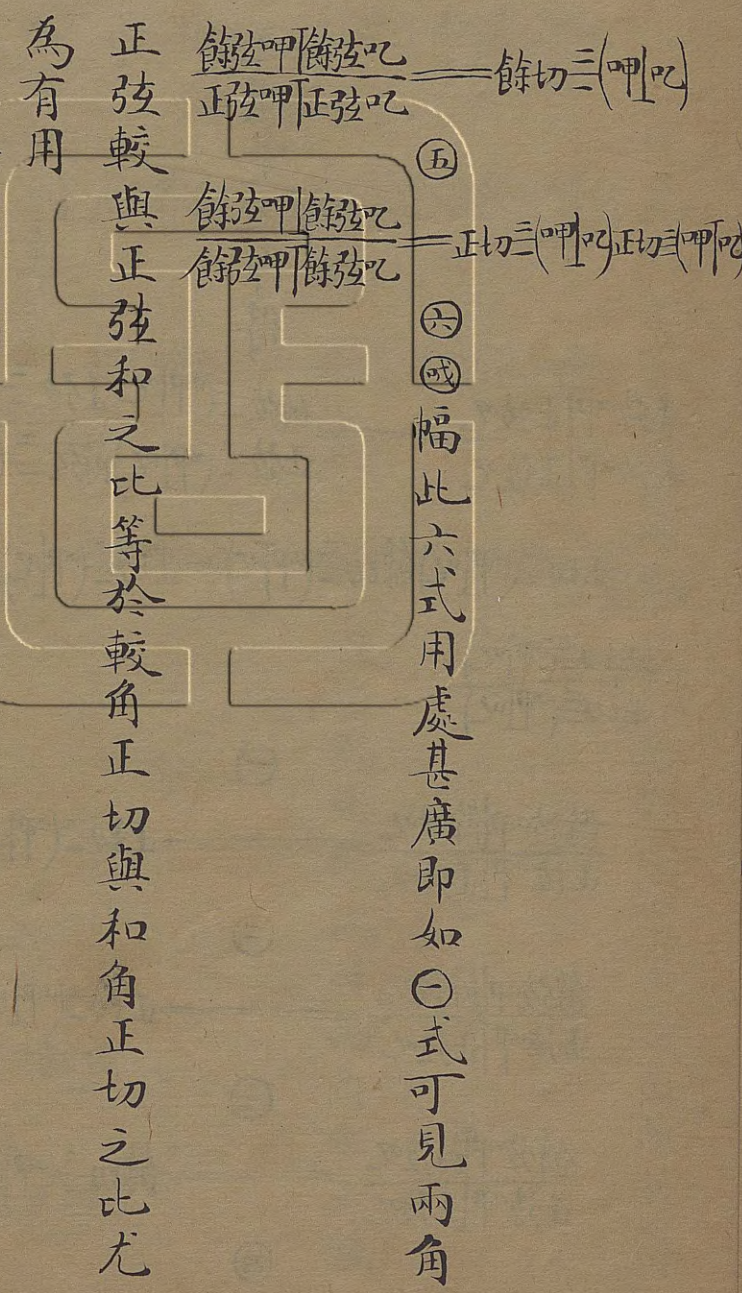 餘弦呷⊥餘弦𠮙
正弦呷丅正弦𠮙
＝餘切二一(呷⊥𠮙)
㊄
餘弦呷⊥餘弦𠮙
餘弦呷丅餘弦𠮙
＝正切二一(呷⊥𠮙)正切二一(呷丅𠮙)
㊅
幅此六式用處甚廣即如㊀式可見兩角
正弦較與正弦和之比等於較角正切與和角正切之比尤
為有用